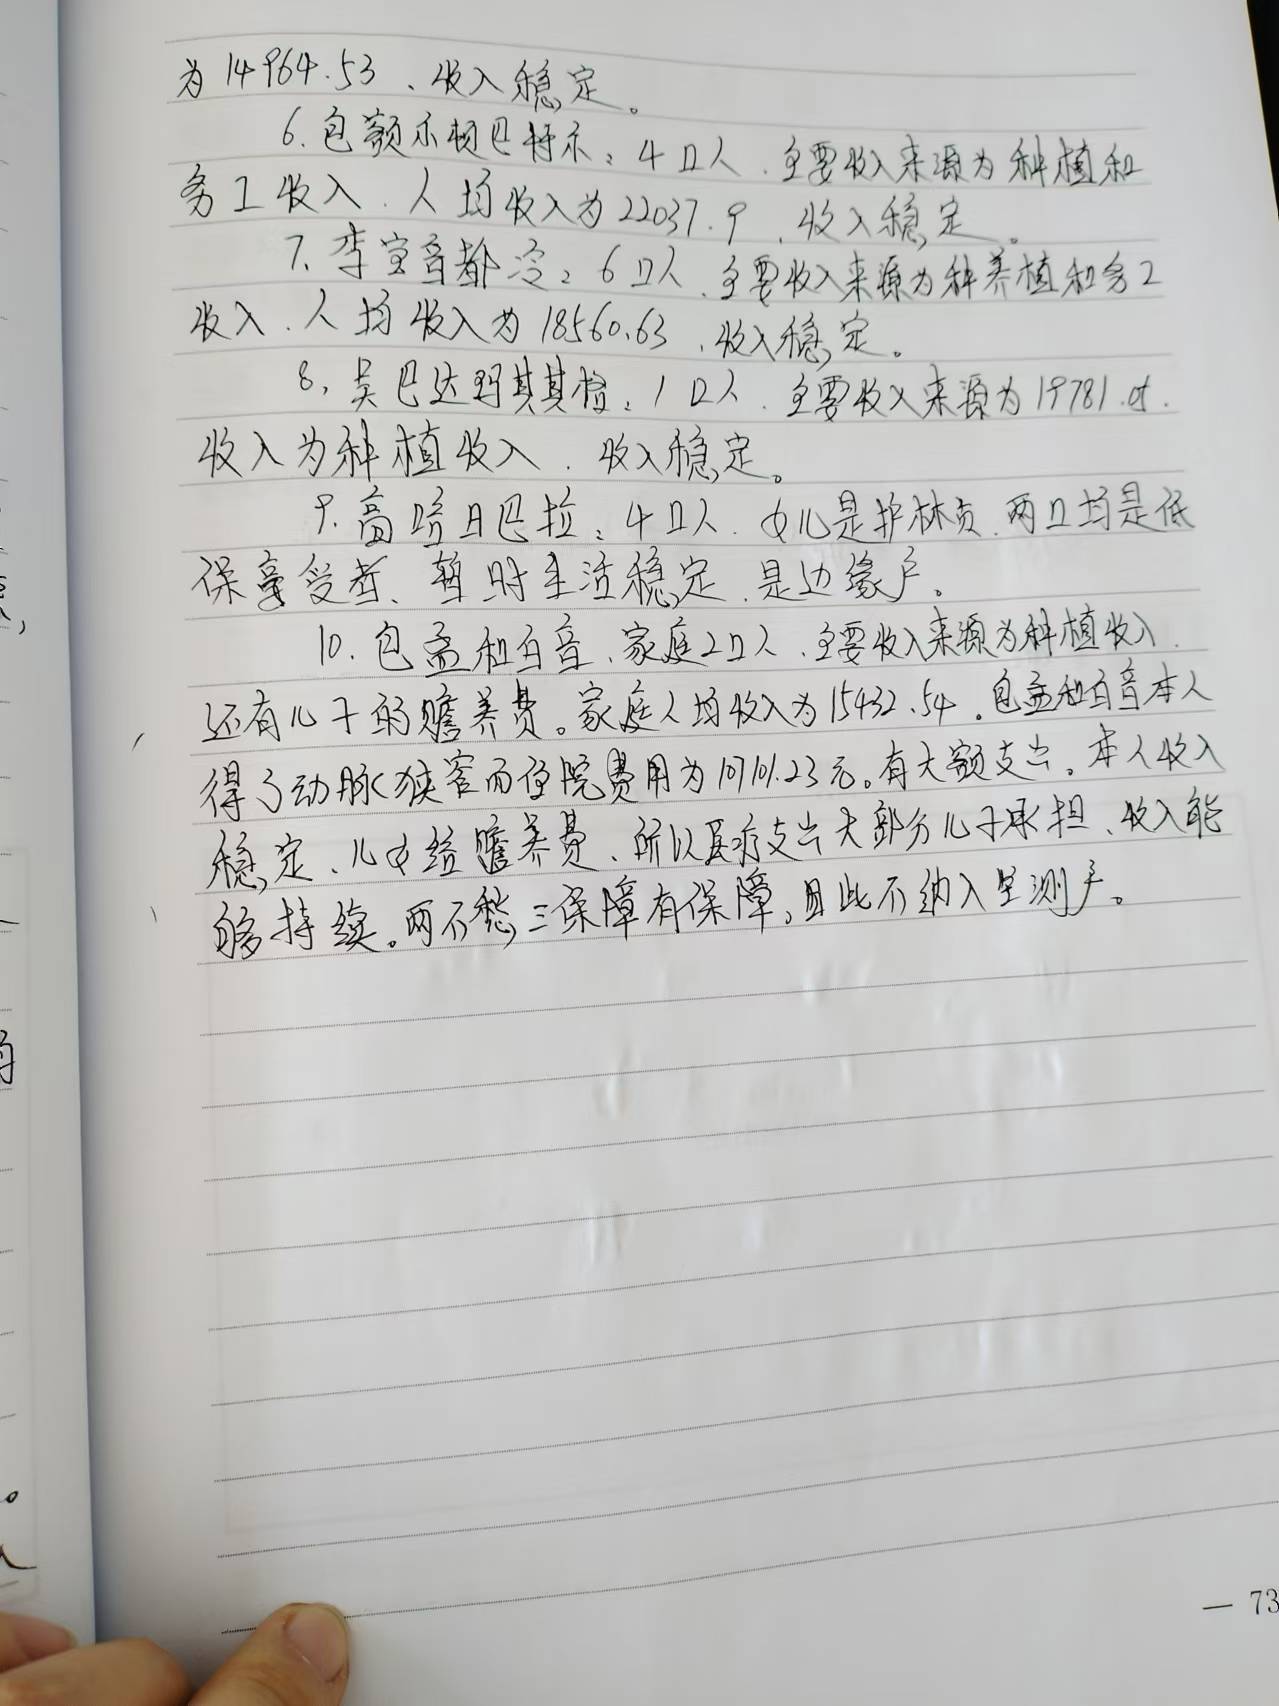 为14964.53、收入稳定。
6.包额尔顿巴特尔:4口人.主要收入来源为种植和
务工收入.人均收入为22037.9、收入稳定。
7、李宝音都冷:6口人、主要收入来源为种养植和务工
收入、人均收入为18560.63、收入稳定。
8、吴巴达玛其其格:1口人.主要收入来源为19781.
收入为种植收入、收入稳定。
9.高哈日巴拉:4口人.女儿是护林员.两口均是低
保享受者、暂时生活稳定.是边缘户。
10.包孟和白音、家庭2口人、主要收入来源为种植收入、
还有儿子的赡养费。家庭人均收入为15432.54.包孟和白音本人
得了动脉狭窄而住院费用为10101.23元。有大额支出。本人收入
稳定、儿女给赡养费、所以医疗支出大部分儿子承担、收入能
够持续。两不愁三保障有保障,因此不纳入监测户。
— 73